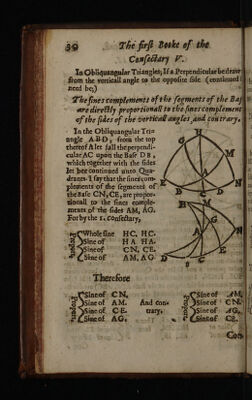 30 The first Booke of the
Consectary V.
In Obliquangular Triangles, If a Perpendicular be drawn
from the verticall angle to the opposite side (continued if
need be,)
The sines complements of the segments of the Base
are directly proportionall to the sines complements
of the sides of the verticall angles, and contrary.
In the Obliquangular Tri-
angle ABD, from the top
thereof A let fall the perpendi-
cular AC upon the Base DB,
which together with the sides
let bee continued unto Qua-
drants. I say that the sines com-
plements of the segments of
the Base CN, CE, are propor-
tionall to the sines comple-
ments of the sides AM, AG.
For by the 1. consectary,
Whole sine HC. HC.
Sine of HA HA.
Sine of CN. CE.
Sine of AM. AG
Therefore
Sine of CN.
Sine of AM.
Sine of CE.
Sine of AG.
And con-
trary,
Sine of AM.
Sine of CN.
Sine of AG.
Sine of CE.
H
M
A
G
E
B
C
D
N